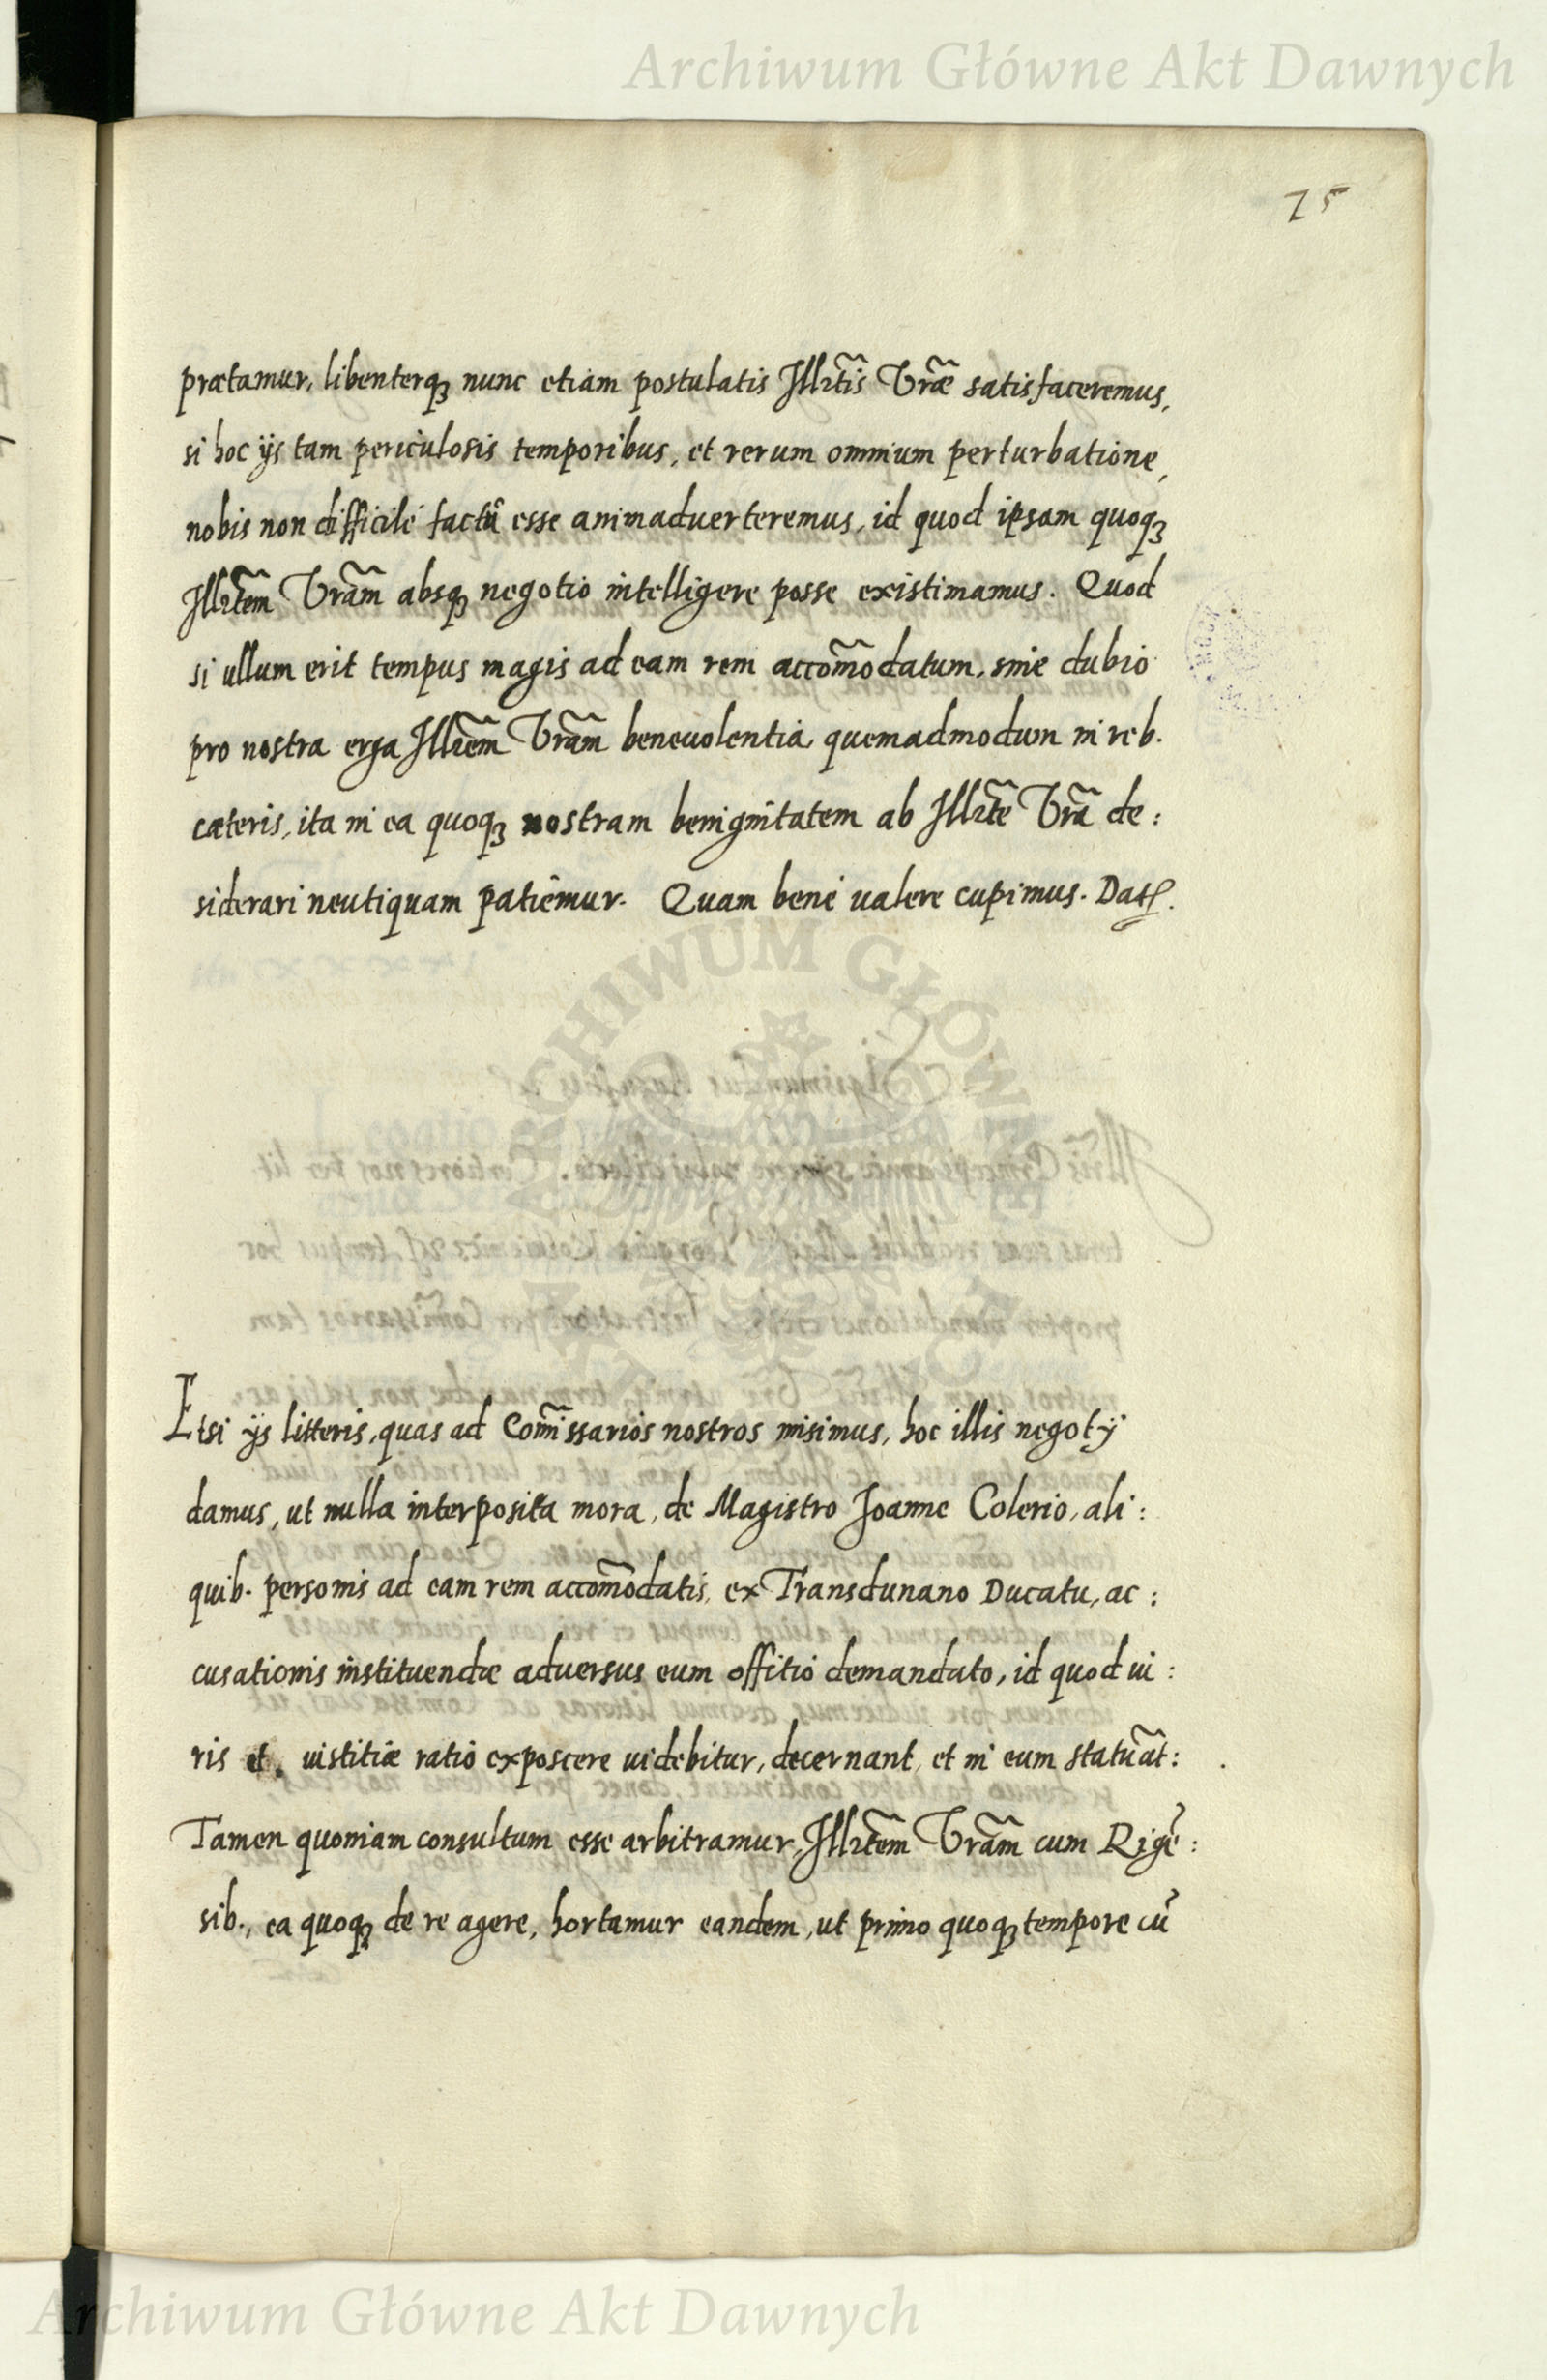 Archiwum Główne Akt Dawnych
75
prætamur, libenterq₃ nunc etiam postulatis Illrt̃is Vrã̃e satisfaceremus,
si hoc ijs tam periculosis temporibus, et rerum omnium perturbatione,
nobis non difficilé factũ esse animaduerteremus, id quod ipsam quoq₃
Illrt̃em Vrãm absq₃ negotio intelligere posse existimamus. Quod
si ullum erit tempus magis ad eam rem accom̃odatum, sine dubio
pro nostra erga Illrẽm Vrãm beneuolentia, quemadmodum in reb.
cæteris, ita in ea quoq₃ nostram benignitatem ab Illrt̃e Vrã de:
siderari neutiquam patiemur. Quam bené ualere cupimus. Dat.
ARCHIWUM GŁÓWNE AKT DAWNYCH
Etsi ijs litteris, quas ad Com̃issarios nostros misimus, hoc illis negotij
damus, ut nulla interposita mora, de Magistro Joanne Colerio, ali:
quib. personis ad eam rem accom̃odatis, ex Transdunano Ducatu, ac:
cusationis instituendæ aduersus eum offitio demandato, id quod iu:
ris et iustitiæ ratio exposcere uidebitur, decernant, et in eum statuãt:
Tamen quoniam consultum esse arbitramur, Illrt̃em Vrãm cum Rigẽ:
sib., ea quoq₃ de re agere, hortamur eandem, ut primo quoq₃ tempore cũ
Archiwum Główne Akt Dawnych